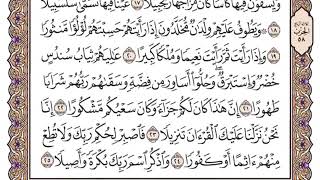 وَيُسْقَوْنَ فِيهَا كَأْسًا كَانَ مِزَاجُهَا زَنجَبِيلًا ١٧ عَيْنًا فِيهَا تُسَمَّىٰ سَلْسَبِيلًا
١٨ ۞ وَيَطُوفُ عَلَيْهِمْ وِلْدَٰنٌ مُّخَلَّدُونَ إِذَا رَأَيْتَهُمْ حَسِبْتَهُمْ لُؤْلُؤًا مَّنثُورًا
١٩ وَإِذَا رَأَيْتَ ثَمَّ رَأَيْتَ نَعِيمًا وَمُلْكًا كَبِيرًا ٢٠ عَٰلِيَهُمْ ثِيَابُ سُندُسٍ
خُضْرٌ وَإِسْتَبْرَقٌ ۖ وَحُلُّوٓا۟ أَسَاوِرَ مِن فِضَّةٍ وَسَقَىٰهُمْ رَبُّهُمْ شَرَابًا
طَهُورًا ٢١ إِنَّ هَٰذَا كَانَ لَكُمْ جَزَآءً وَكَانَ سَعْيُكُم مَّشْكُورًا ٢٢
إِنَّا نَحْنُ نَزَّلْنَا عَلَيْكَ ٱلْقُرْءَانَ تَنزِيلًا ٢٣ فَٱصْبِرْ لِحُكْمِ رَبِّكَ وَلَا تُطِعْ
مِنْهُمْ ءَاثِمًا أَوْ كَفُورًا ٢٤ وَٱذْكُرِ ٱسْمَ رَبِّكَ بُكْرَةً وَأَصِيلًا ٢٥
الحزب
٥٨